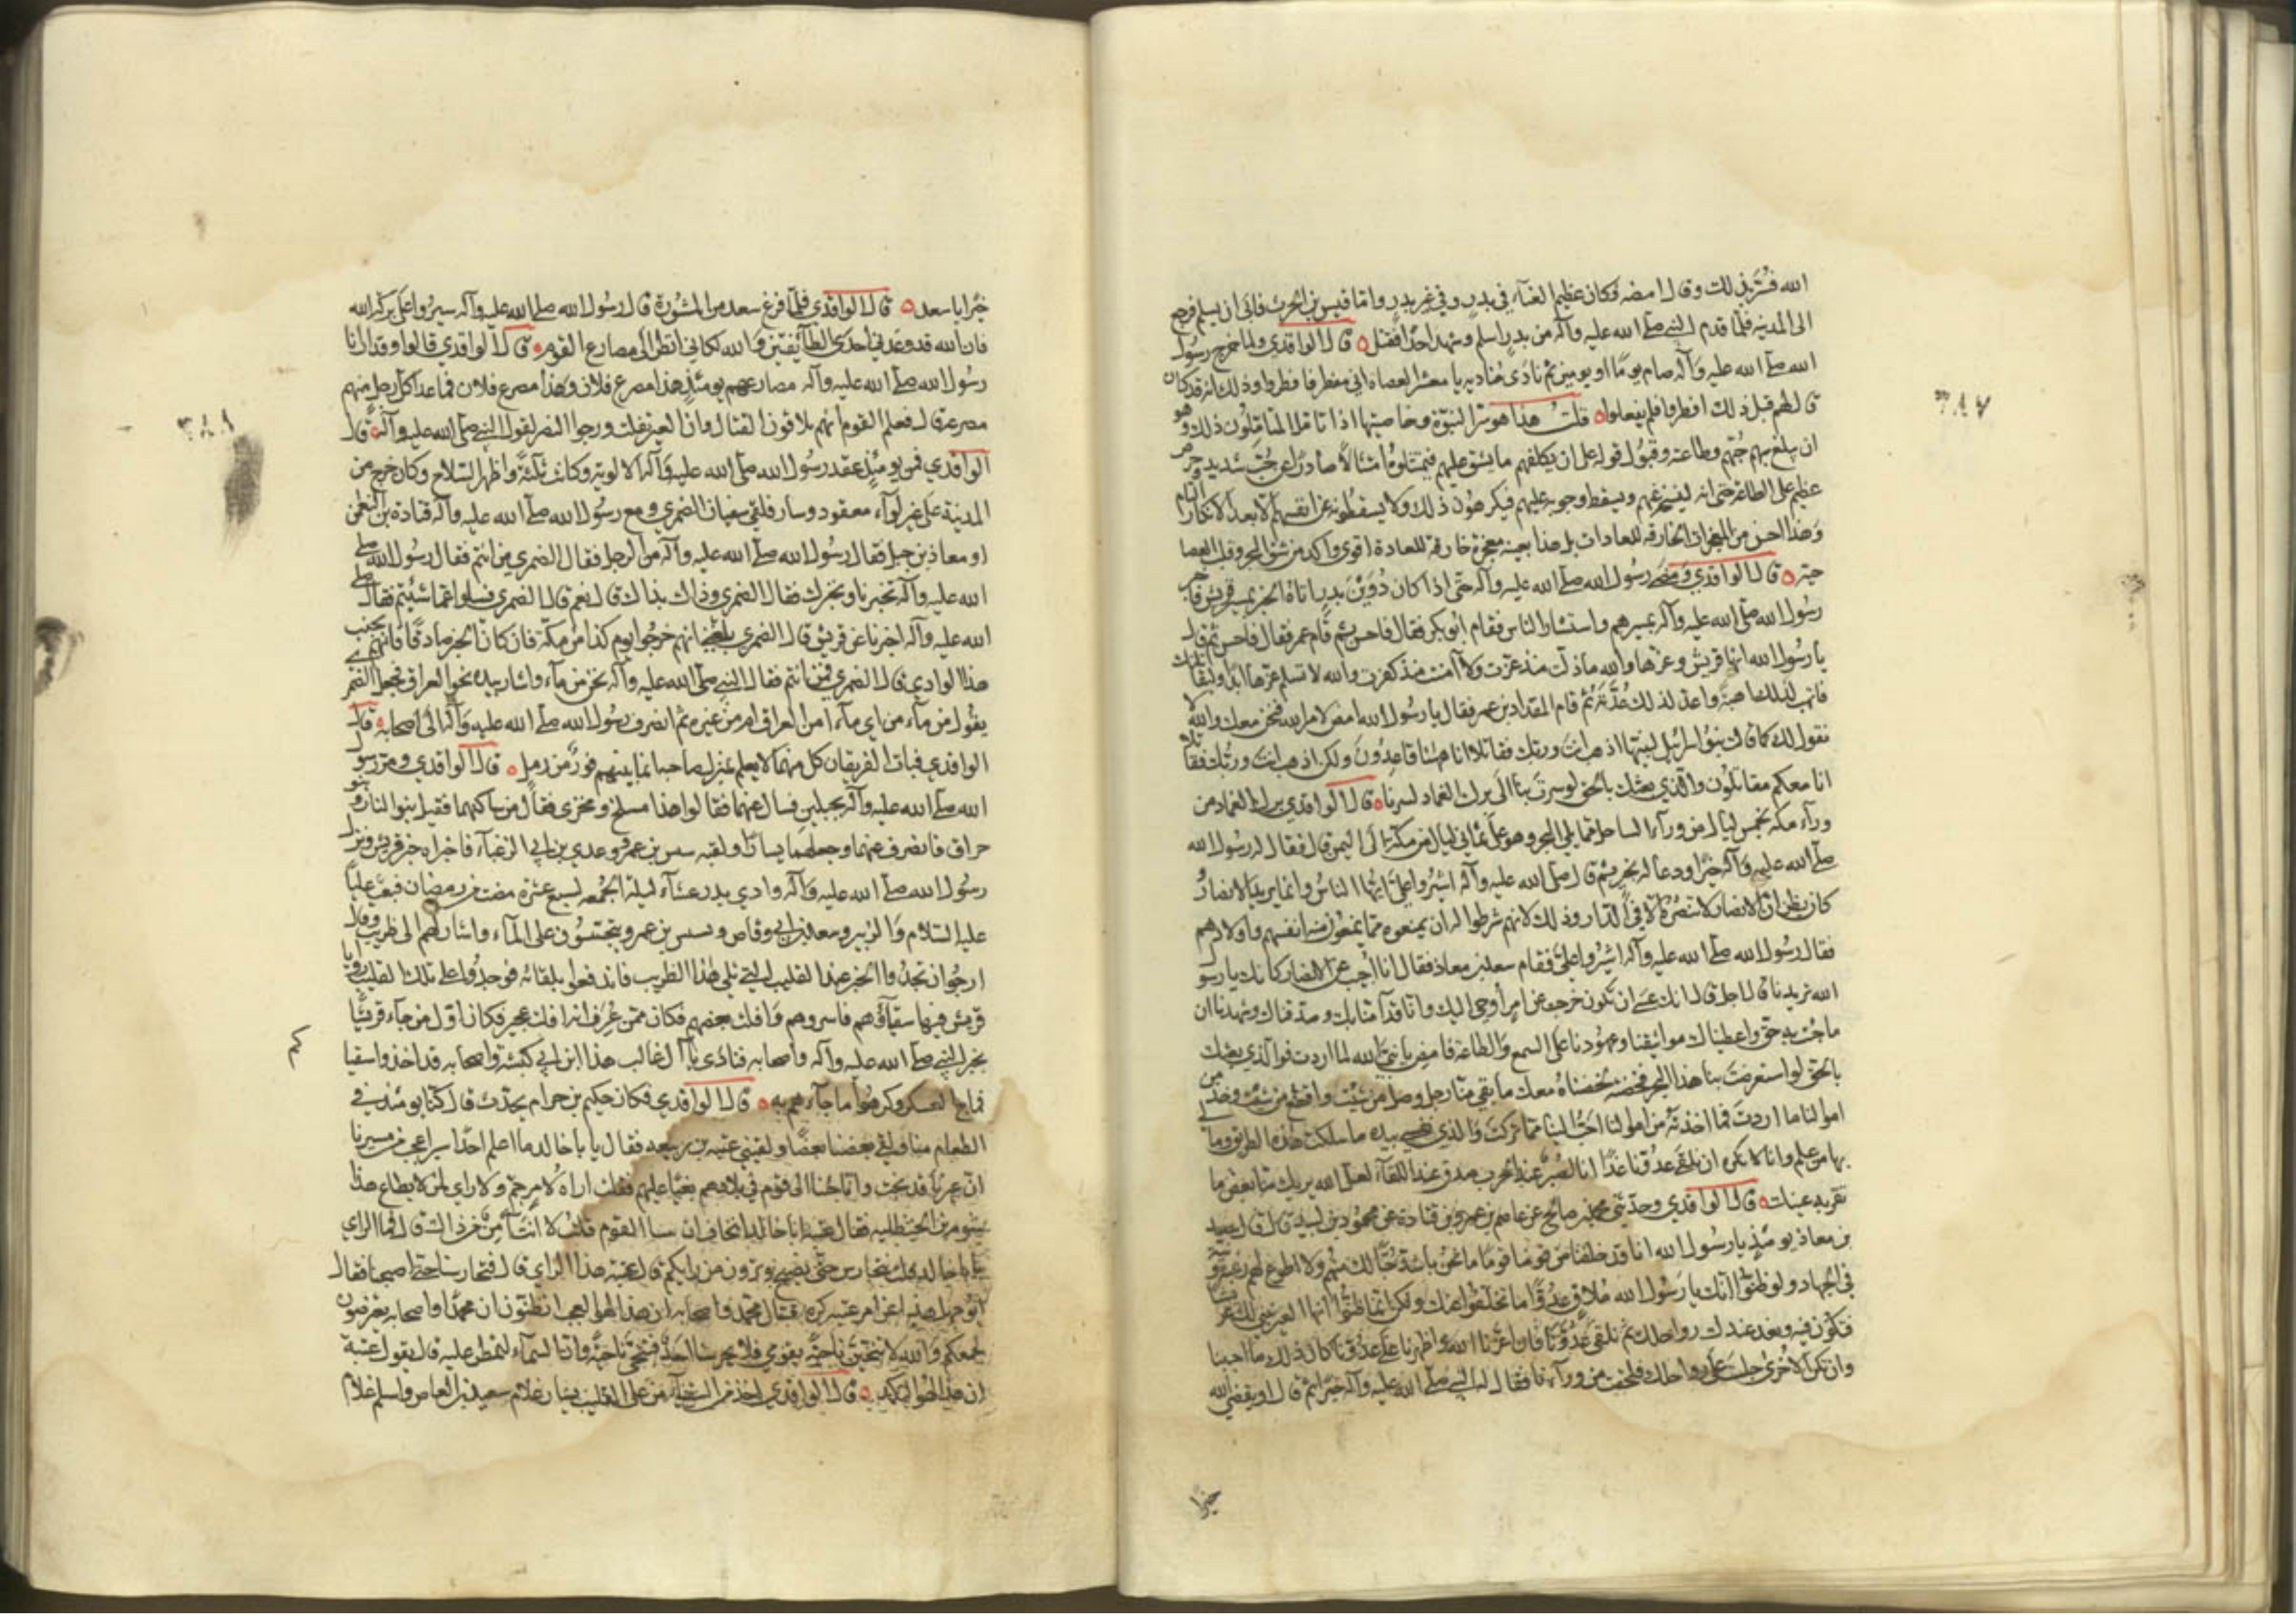 الله فسر بذلك وقال امضه فكان عظيم الغناء في بدر وفي غير بدر واما قيس بن الحرث فابى ان يسلم فرجع
الى المدينة فلما قدم النبي صلى الله عليه وآله من بدر اسلم وشهد احدا فقتل ٥ قال الواقدي ولما خرج رسول
الله صلى الله عليه وآله صام يوما او يومين ثم نادى مناديه يا معشر العصاة اني مفطر فافطروا وذلك انه قد كان
قال لهم قبل ذلك افطروا فلم يفعلوا ٥ قلت هذا هو سر النبوة وخاصيتها اذا تامل المتاملون ذلك وهو
ان يبلغ بهم حبهم وطاعته وقبول قوله على ان يكلفهم ما يشق عليهم فيمتثلوه امتثالا صادرا عن حب شديد وحرص
عظيم على الطاعة حتى انه لينسخه عنهم ويسقط وجوبه عليهم فيكرهون ذلك ولا يسقطونه عن انفسهم الا بعد الانكار التام
وهذا احسن من المعجزات الخارقة للعادات بل هذا بعينه معجزة خارقة للعادة اقوى وآكد من شق البحر وقلب العصا
حية ٥ قال الواقدي ومضى رسول الله صلى الله عليه وآله حتى اذا كان دوين بدر اتاه الخبر بمسير قريش فاخبر
رسول الله صلى الله عليه وآله بمسيرهم واستشار الناس فقام ابو بكر فقال فاحسن ثم قام عمر فقال فاحسن ثم قال
يا رسول الله انها قريش وعزها والله ما ذلت منذ عزت ولا آمنت منذ كفرت والله لا تسلم عزها ابدا ولتقاتلنك
فاتهب لذلك اهبته واعد لذلك عدته ثم قام المقداد بن عمر فقال يا رسول الله امض لامر الله فنحن معك والله لا
نقول لك كما قالت بنو اسرائيل لنبيها اذهب انت وربك فقاتلا انا هٰهنا قاعدون ولكن اذهب انت وربك فقاتلا
انا معكم مقاتلون والذي بعثك بالحق لو سرت بنا الى برك الغماد لسرنا ٥ قال الواقدي برك الغماد من
وراء مكة بخمس ليال من وراء الساحل مما يلي البحر وهو على ثماني ليال من مكة الى اليمن قال فقال له رسول الله
صلى الله عليه وآله خيرا ودعا له بخير ثم قال صلى الله عليه وآله اشيروا علي ايها الناس وانما يريد الانصار و
كان يظن ان الانصار لا تنصره الا في الدار وذلك لانهم شرطوا له ان يمنعوه مما يمنعون منه انفسهم واولادهم
فقال رسول الله صلى الله عليه وآله اشيروا علي فقام سعد بن معاذ فقال انا اجيب عن الانصار كانك يا رسول
الله تريدنا قال اجل قال انك عسى ان تكون خرجت عن امر اوحي اليك وانا قد آمنا بك وصدقناك وشهدنا ان
ما جئت به حق واعطيناك مواثيقنا وعهودنا على السمع والطاعة فامض يا نبي الله لما اردت فوالذي بعثك
بالحق لو استعرضت بنا هذا البحر فخضته لخضناه معك ما بقي منا رجل وصل من شئت واقطع من شئت وخذ من
اموالنا ما اردت فما اخذته من اموالنا احب الينا مما تركت والذي نفسي بيده ما سلكت هذه الطريق وما لي
بها من علم وانا لا نكره ان نلقى عدونا غدا انا لصبر عند الحرب صدق عند اللقاء لعل الله يريك منا بعض ما
تقر به عينك ٥ قال الواقدي وحدثني محمد بن صالح عن عاصم بن عمر بن قتادة عن محمود بن لبيد قال قال سعد
بن معاذ يومئذ يا رسول الله انا قد خلفنا من قومنا قوما ما نحن باشد حبا لك منهم ولا اطوع لهم رغبة ونية
في الجهاد ولو ظنوا انك يا رسول الله ملاق عدوا ما تخلفوا عنك ولكن انما ظنوا انها العير نبني لك عريشا
فتكون فيه ونعد عندك رواحلك ثم نلقى عدونا فان اعزنا الله واظهرنا على عدونا كان ذلك ما احببنا
وان تكن الاخرى جلست على رواحلك فلحقت من وراءنا فقال له النبي صلى الله عليه وآله خيرا ثم قال او يقضي الله
خيرا
٦٨٧
خيرا يا سعد ٥ قال الواقدي فلما فرغ سعد من المشورة قال رسول الله صلى الله عليه وآله سيروا على بركة الله
فان الله قد وعدني احدى الطائفتين والله لكاني انظر الى مصارع القوم ٥ قال الواقدي قالوا وقد ارانا
رسول الله صلى الله عليه وآله مصارعهم يومئذ هذا مصرع فلان وهذا مصرع فلان فما عدا كل رجل منهم
مصرعه قال فعلم القوم انهم يلاقون القتال وان العير تفلت ورجوا النصر لقول النبي صلى الله عليه وآله ٥ قال
الواقدي فمن يومئذ عقد رسول الله صلى الله عليه وآله الالوية وكانت ثلثة واظهر السلاح وكان خرج من
المدينة على غير لواء معقود وسار فلقي سفيان الضمري ومع رسول الله صلى الله عليه وآله قتادة بن النعمن
او معاذ بن جبل فقال رسول الله صلى الله عليه وآله من الرجل فقال الضمري من انتم فقال رسول الله صلى
الله عليه وآله تخبرنا ونخبرك فقال الضمري وذاك بذاك قال نعم قال الضمري فسلوا عما شئتم فقال صلى
الله عليه وآله اخبرنا عن قريش قال الضمري بلغني انهم خرجوا يوم كذا من مكة فان كان الخبر صادقا فانهم بجنب
هذا الوادي قال الضمري فمن انتم فقال النبي صلى الله عليه وآله نحن من ماء واشار بيده نحو العراق فجعل الضمري
يقول من ماء من اي ماء امن العراق ام من غيره ثم انصرف رسول الله صلى الله عليه وآله الى اصحابه ٥ قال
الواقدي فبات الفريقان كل منهما لا يعلم بمنزل صاحبه انما بينهم قوز من رمل ٥ قال الواقدي ومر رسول
الله صلى الله عليه وآله بجبلين فسال عنهما فقالوا هذا مسلح ومخرى فقال من ساكنهما فقيل بنو النار وبنو
حراق فانصرف عنهما وجعلهما يسارا ولقيه بسبس بن عمرو وعدي بن ابي الزغباء فاخبراه خبر قريش ونزل
رسول الله صلى الله عليه وآله وادي بدر عشاء ليلة الجمعة لسبع عشرة مضت من رمضان فبعث عليا
عليه السلام والزبير وسعد بن ابي وقاص وبسبس بن عمرو يتجسسون على الماء واشار لهم الى ظريب وقال
ارجوا ان تجدوا الخبر عند القليب التي تلي هذا الظريب فاندفعوا تلقائه فوجدوا على تلك القليب روايا
قريش فيها سقاؤهم فاسروهم وافلت بعضهم فكان ممن عرف انه افلت عجير فكان اول من جاء قريشا
بخبر النبي صلى الله عليه وآله واصحابه فنادى يا آل غالب هذا ابن ابي كبشة واصحابه قد اخذوا سقيا
فماج العسكر وكرهوا ما جاءهم به ٥ قال الواقدي فكان حكيم بن حزام يحدث قال كنا يومئذ في
الطعام منا فلقي بعضنا بعضا ولقيني عتبة بن ربيعة فقال يا با خالد ما اعلم احدا يسير اعجب من مسيرنا
ان عيرنا قد نجت وانا جئنا الى قوم في بلادهم بغيا عليهم فقلت اراه لامر حم ولا راي لمن لا يطاع هذا
شوم بن الحنظلية فقال عتبة ابا خالد اتخاف ان القوم قلت لا انت آمن من ذلك قال فما الراي
يا با خالد قلت نتحارس حتى نصبح وترون من رايكم قال عتبة هذا الراي قال فتحارسنا حتى اصبحنا فقال
ابو جهل هذا عن امر عتبة كره قتال محمد واصحابه ان هذا لهو العجب اتظنون ان محمدا واصحابه يعترضون
لجمعكم والله لانتحين ناحية بقومي فلا يحرسنا احد فتنحى ناحية وان السماء لتمطر عليه قال يقول عتبة
ان هذا لهو النكد ٥ قال الواقدي اخذ من السقاء من على القليب يسار غلام سعيد بن العاص واسلم غلام
٦٨٨